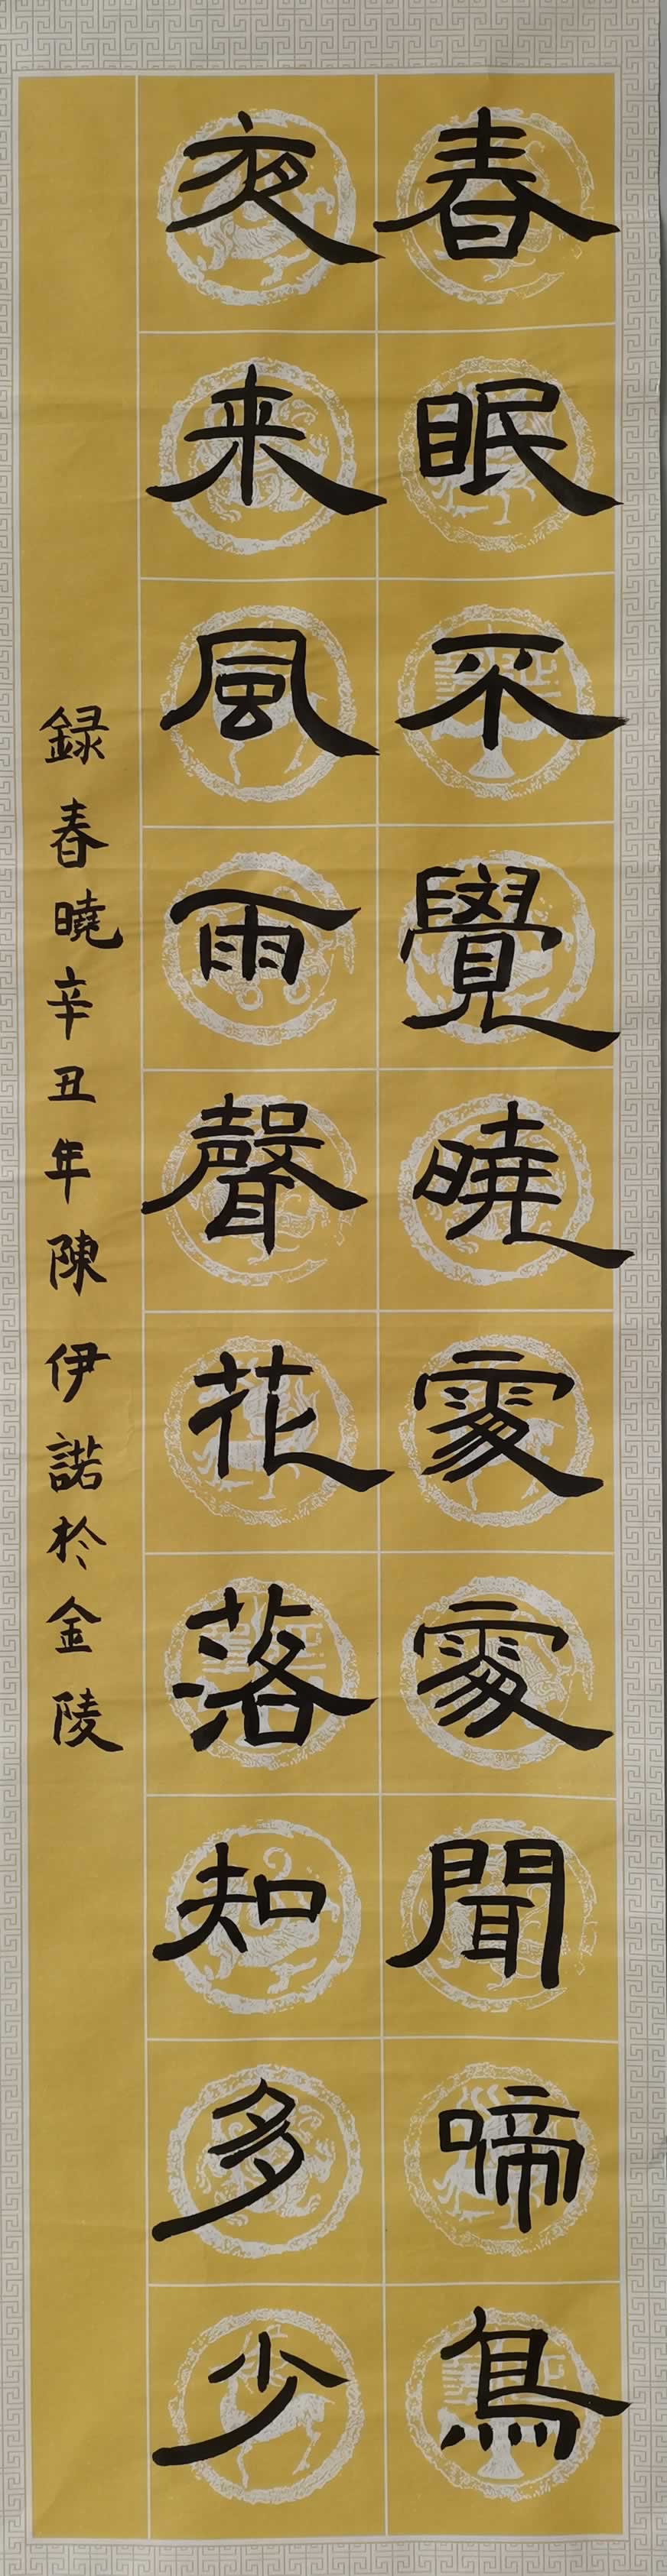 春眠不覺曉處處聞啼鳥
夜来風雨聲花落知多少
録春曉辛丑年陳伊諾於金陵